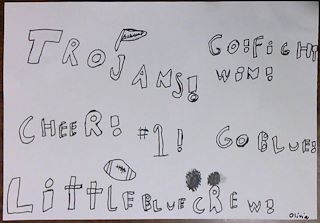 TROJANS!
GO! FIGHT
WIN!
CHEER!
#1!
GO BLUE!
LITTLE BLUE CREW!
Olivia